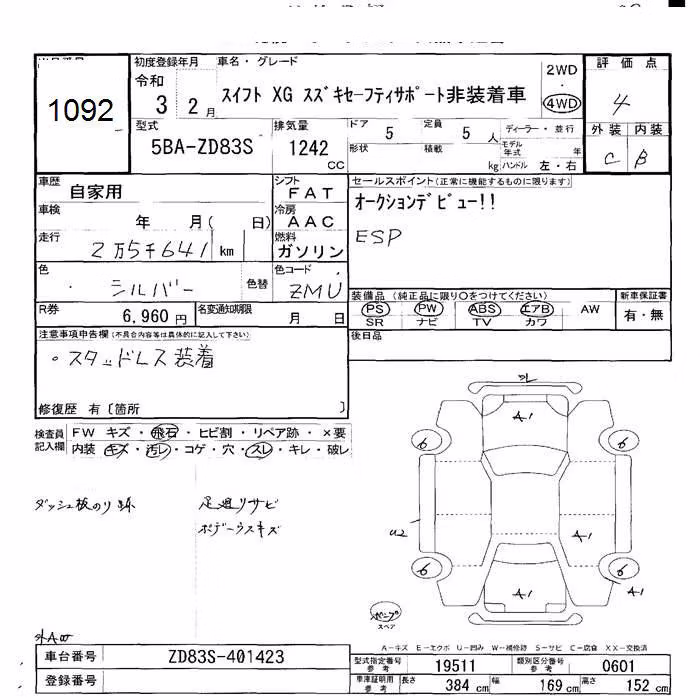 1092
初度登録年月
令和
3 2月
車名・グレード
スイフト XG スズキセーフティサポート非装着車
2WD
4WD
評価点
4
外装 内装
C B
型式
5BA-ZD83S
排気量
1242
CC
ドア
5
定員
5人
形状
積載
kg
ディーラー・並行
モデル年式
年
ハンドル 左・右
車歴
自家用
車検
年 月( 日)
走行
2万5千641 km
色
シルバー
色替
R券
6,960円
名変通知期限
月 日
シフト
FAT
冷房
AAC
燃料
ガソリン
色コード
ZMU
セールスポイント(正常に機能するものに限ります)
オークションデビュー!!
ESP
装備品 (純正品に限り○をつけてください)
PS PW ABS エアB AW
SR ナビ TV カワ
新車保証書
有・無
後日品
注意事項申告欄(不具合内容等は具体的に記入して下さい)
・スタッドレス装着
修復歴 有〔箇所 〕
検査員
記入欄
FW キズ・飛石・ヒビ割・リペア跡・×要
内装・キズ・汚レ・コゲ・穴・スレ・キレ・破レ
ダッシュ板のり跡
足廻りサビ
ボデーウスキズ
A1
6
6
U2
A1
6
6
A1
A1
スペア
A-キズ E-エクボ U-凹み W-補修跡 S-サビ C-腐食 XX-交換済
車台番号
ZD83S-401423
登録番号
型式指定番号
参考
19511
類別区分番号
参考
0601
車庫証明用
参考
長さ
384 cm
幅
169 cm
高さ
152 cm